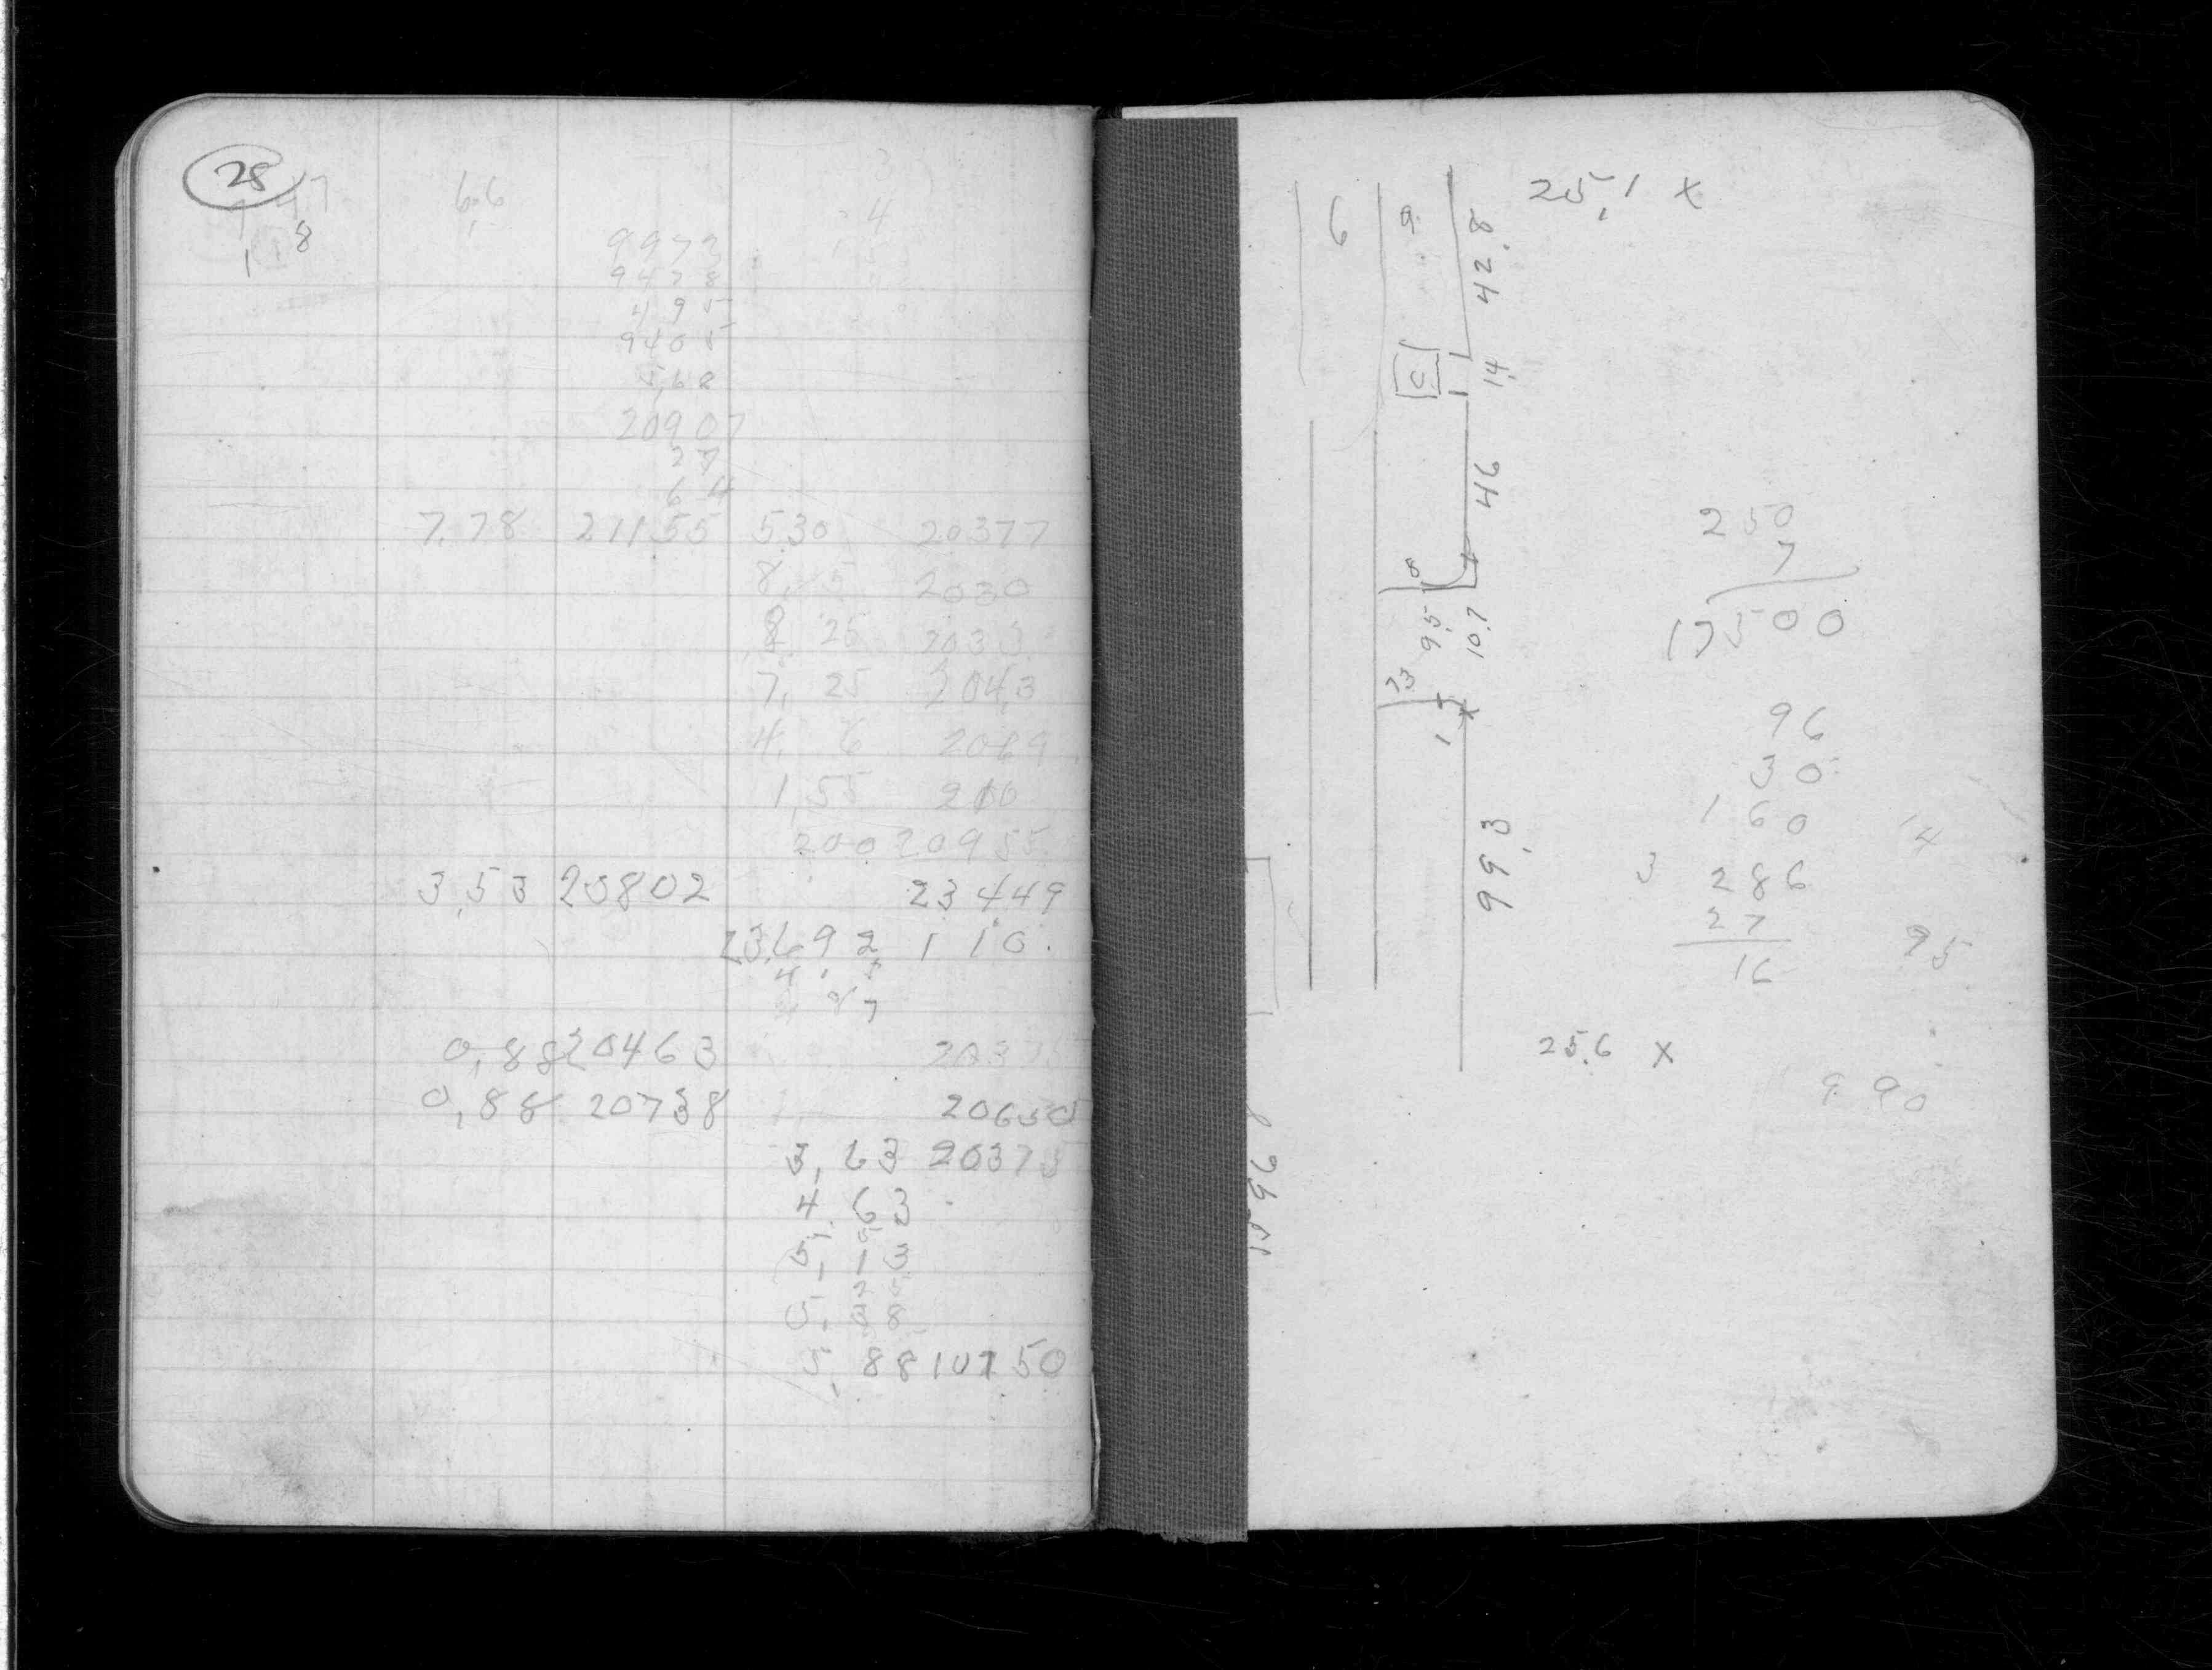 28
47
6.6
4
1 8
9973
9428
495
9405
20907
27
64
7.78 21155 530 20377
8. 5 2030
8 25 2033
7. 25 2043
4. 6 2069
1,55 210
200 20955
3,53 23802 23449
23692 110.
4. 5
97
0,88 20463 20375
0,88 20738 20650
3, 63 20375
4. 63
5, 13
0, 88
5, 88 10750
25,1 x
6
9.
42.8
14
46
8
95
10.7
23
1
99,3
250
7
17500
96
30
160
14
3 286
27
16
95
25.6 x
990